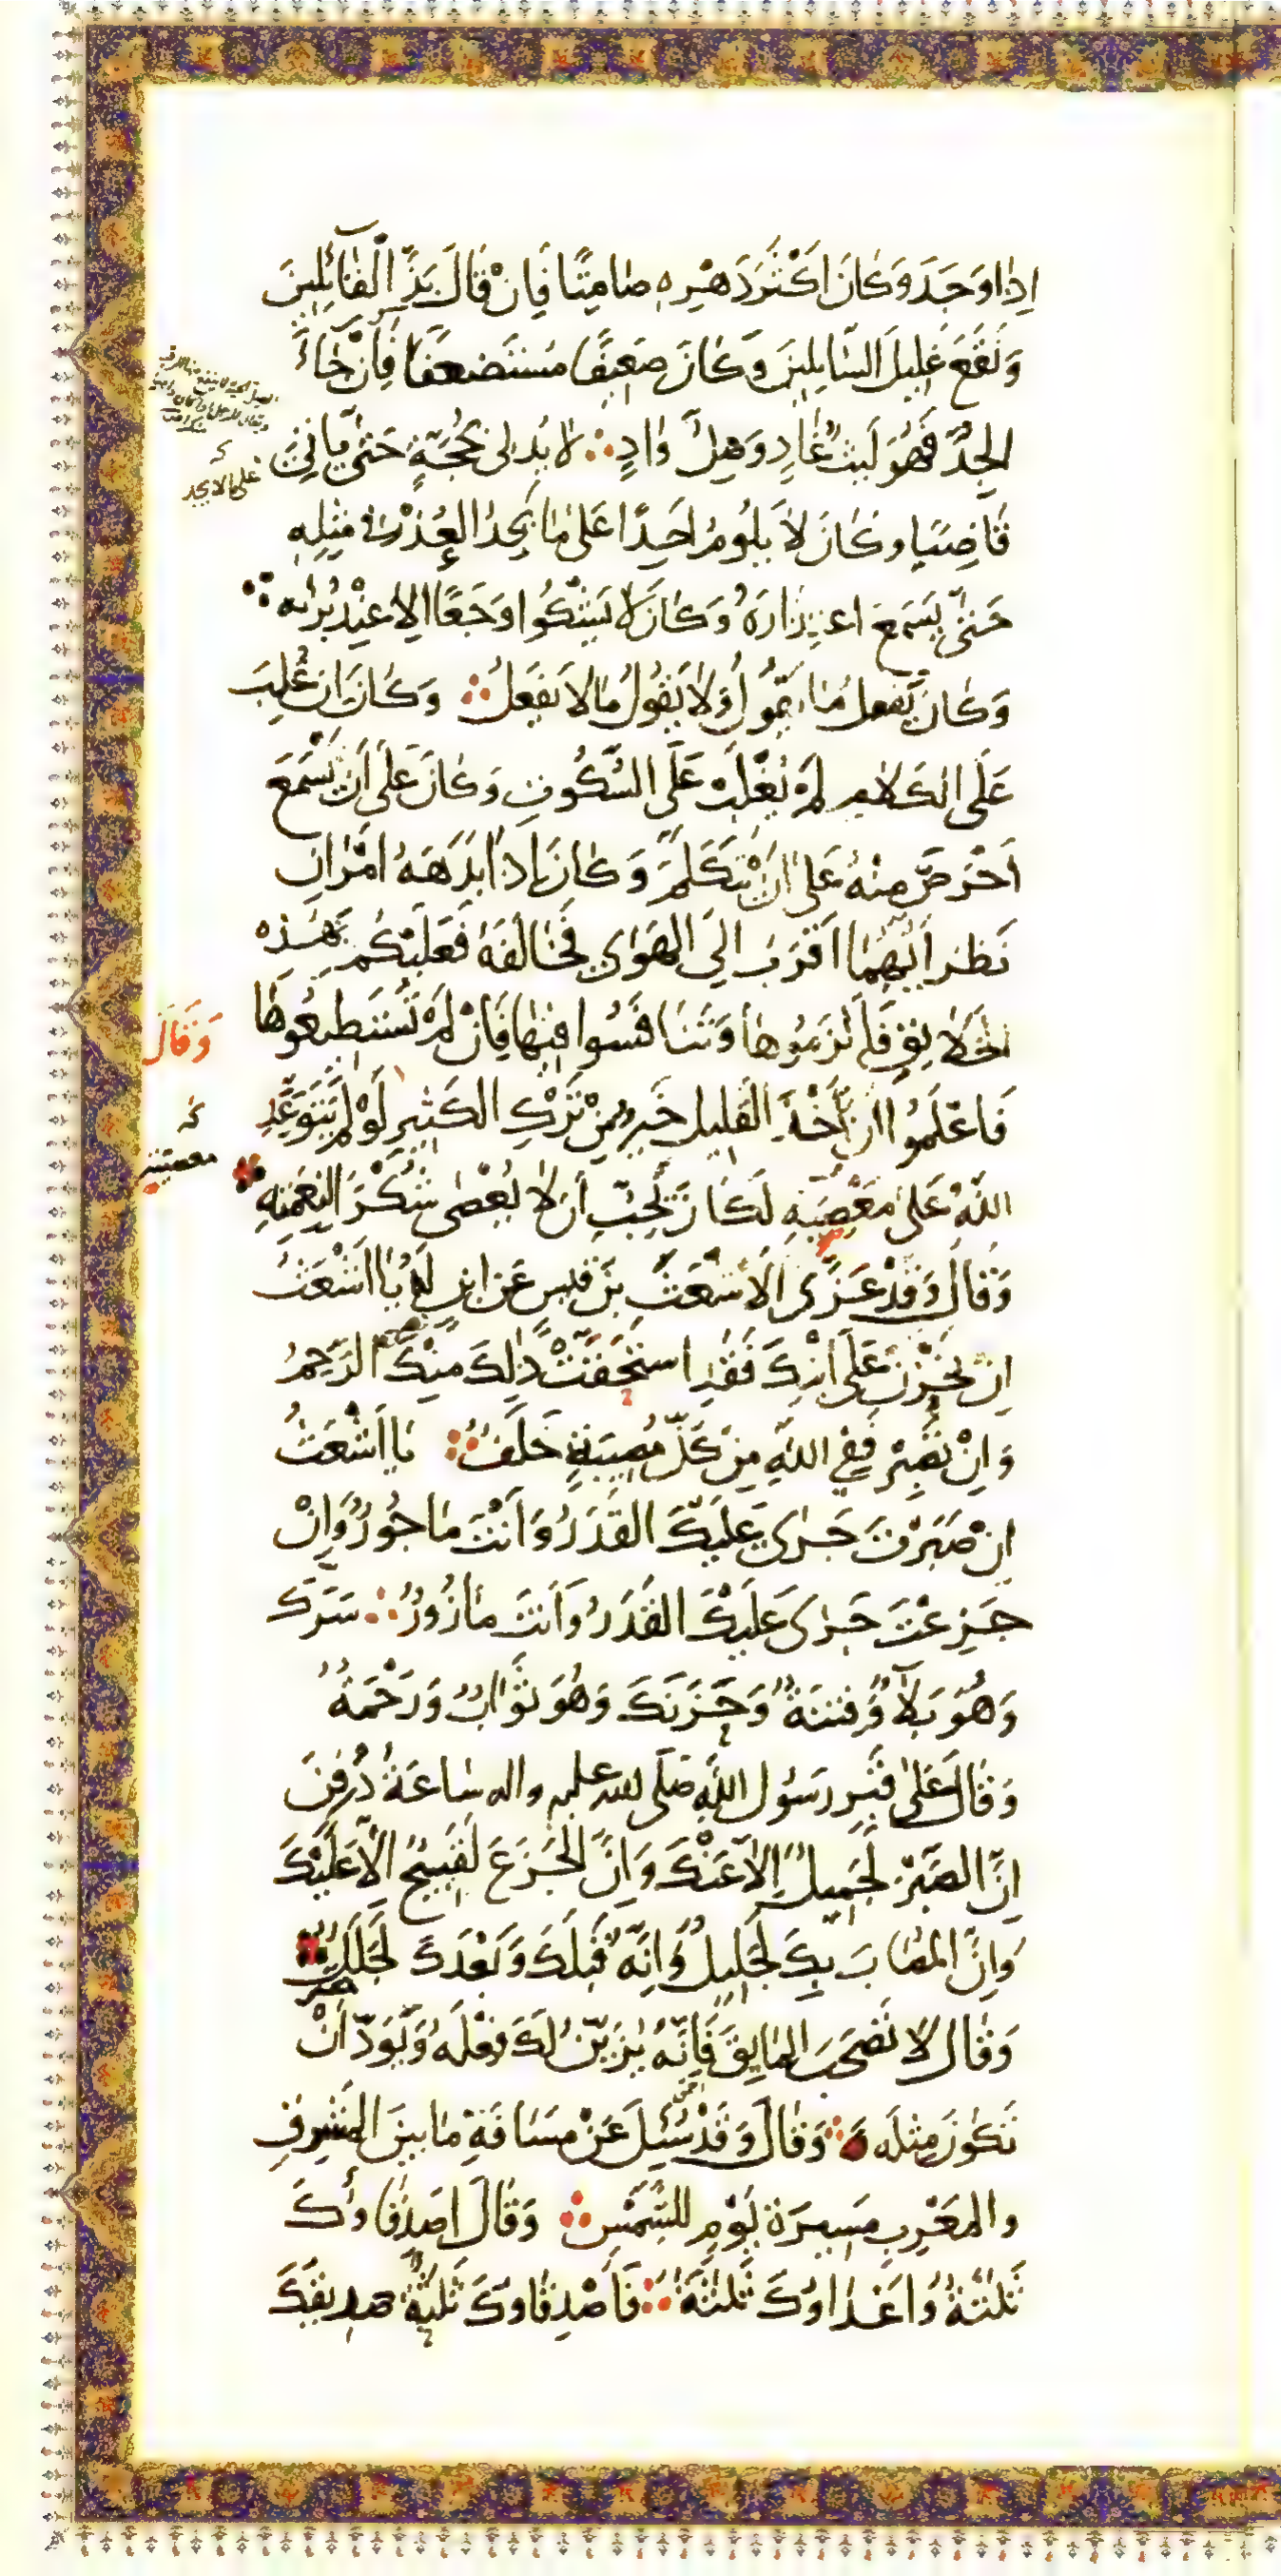 اِذٰا وَجَدَ وَكٰانَ اَكْثَرَ دَهْرِهٖ صٰامِتًا فَاِنْ قٰالَ بَذَّ الْقٰائِلِينَ
وَنَقَعَ غَلِيلَ السّٰائِلِينَ وَكٰانَ ضَعِيفًا مُسْتَضْعَفًا فَاِنْ جٰاءَ
الْجِدُّ فَهُوَ لَيْثُ غٰادٍ وَصِلُّ وٰادٍ لٰا يُدْلِى بِحُجَّةٍ حَتّٰى يَأْتِىَ
قٰاضِيًا وَكٰانَ لٰا يَلُومُ اَحَدًا عَلىٰ مٰا يَجِدُ الْعُذْرَ فِى مِثْلِهٖ
حَتّٰى يَسْمَعَ اعْتِذٰارَهُ وَكٰانَ لٰا يَشْكُوا وَجَعًا اِلّٰا عِنْدَ بُرْئِهٖ
وَكٰانَ يَفْعَلُ مٰا يَقُولُ وَلٰا يَقُولُ مٰا لٰا يَفْعَلُ وَكٰانَ اِنْ غُلِبَ
عَلَى الْكَلٰامِ لَمْ يُغْلَبْ عَلَى السُّكُوتِ وَكٰانَ عَلىٰ اَنْ يَسْمَعَ
اَحْرَصَ مِنْهُ عَلىٰ اَنْ يَتَكَلَّمَ وَكٰانَ اِذٰا بَدَهَهُ اَمْرٰانِ
نَظَرَ اَيُّهُمٰا اَقْرَبُ اِلَى الْهَوٰى فَخٰالَفَهُ فَعَلَيْكُمْ بِهٰذِهِ
الْخَلٰائِقِ فَالْزَمُوهٰا وَتَنٰافَسُوا فِيهٰا فَاِنْ لَمْ تَسْتَطِيعُوهٰا
فَاعْلَمُوا اَنَّ اَخْذَ الْقَلِيلِ خَيْرٌ مِنْ تَرْكِ الْكَثِيرِ لَوْ لَمْ يَتَوَعَّدِ
وَقَالَ
اللّٰهُ عَلىٰ مَعْصِيَتِهِ لَكٰانَ يَجِبُ اَنْ لٰا يُعْصٰى شُكْرَ النِعَمِهِ
معصيته
وَقٰالَ وَقَدْ عَزّٰى الْاَشْعَثَ بْنَ قَيْسٍ عَنِ ابْنٍ لَهُ يٰا اَشْعَثُ
اِنْ تَحْزَنْ عَلَى ابْنِكَ فَقَدِ اسْتَحَقَّتْ ذٰلِكَ مِنْكَ الرَّحِمُ
وَاِنْ تَصْبِرْ فَفِى اللّٰهِ مِنْ كُلِّ مُصِيبَةٍ خَلَفٌ يٰا اَشْعَثُ
اِنْ صَبَرْتَ جَرٰى عَلَيْكَ الْقَدَرُ وَاَنْتَ مٰاجُورٌ وَاِنْ
جَزِعْتَ جَرٰى عَلَيْكَ الْقَدَرُ وَاَنْتَ مٰأزُورٌ سَرَّكَ
وَهُوَ بَلٰاءٌ وَفِتْنَةٌ وَحَزَنَكَ وَهُوَ ثَوٰابٌ وَرَحْمَةٌ
وَقٰالَ عَلىٰ قَبْرِ رَسُولِ اللّٰهِ صَلَّى الله عليه واله سٰاعَةَ دُفِنَ
اِنَّ الصَّبْرَ لَجَمِيلٌ اِلّٰا عَنْكَ وَاِنَّ الْجَزَعَ لَقَبِيحٌ اِلّٰا عَلَيْكَ
وَاِنَّ الْمُصٰابَ بِكَ لَجَلِيلٌ وَاِنَّهُ قَبْلَكَ وَبَعْدَكَ لَجَلَلٌ
وَقٰالَ لٰا تَصْحَبِ الْمٰايِقَ فَاِنَّهُ يُزَيِّنُ لَكَ فِعْلَهُ وَيَوَدُّ اَنْ
تَكُونَ مِثْلَهُ وَقٰالَ وَقَدْ سُئِلَ عَنْ مَسٰافَةِ مٰا بَيْنَ الْمَشْرِقِ
وَالْمَغْرِبِ مَسِيرَةُ يَوْمٍ لِلشَّمْسِ وَقٰالَ اَصْدِقٰاؤُكَ
ثَلٰثَةٌ وَاَعْدٰاؤُكَ ثَلٰثَةٌ فَاَصْدِقٰاؤُكَ ثَلٰثَةٌ صديقك